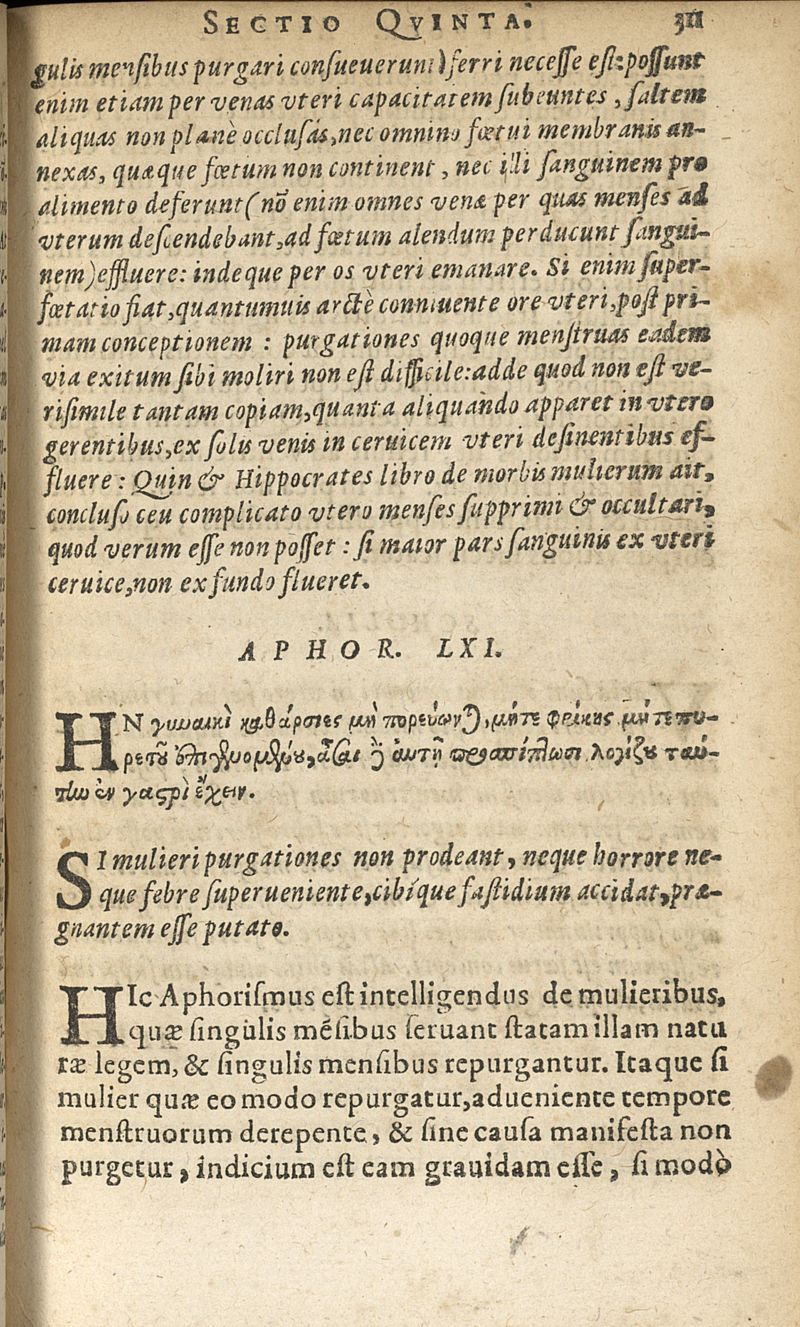 SECTIO QVINTA.
311
gulis mensibus purgari consueuerunt) ferri necesse est: possunt
enim etiam per venas vteri capacitatem subeuntes, saltem
aliquas non planè occlusas, nec omnino fœtui membranis an-
nexas, quæque fœtum non continent, nec illi sanguinem pro
alimento deferunt (nō enim omnes venæ per quas menses ad
vterum descendebant, ad fœtum alendum perducunt sangui-
nem) effluere: indeque per os vteri emanare. Si enim super-
fœtatio fiat, quantumuis arctè conniuente ore vteri, post pri-
mam conceptionem : purgationes quoque menstruas eadem
via exitum sibi moliri non est difficile: adde quod non est ve-
risimile tantam copiam, quanta aliquando apparet in vtero
gerentibus, ex solis venis in ceruicem vteri desinentibus ef-
fluere : Quin & Hippocrates libro de morbis mulierum ait,
concluso ceu complicato vtero menses supprimi & occultari,
quod verum esse non posset : si maior pars sanguinis ex vteri
ceruice, non ex fundo flueret.
APHOR. LXI.
ΗΝ γυναικὶ καθάρσιες μὴ πορεύωνται, μήτε φρίκης, μήτε πυ-
ρετοῦ ἐπιγενομένου, ἆσαι δὲ αὐτῇ προσπίπτωσι, λογίζου ταύ-
την ἐν γαστρὶ ἔχειν.
SI mulieri purgationes non prodeant, neque horrore ne-
que febre superueniente, cibíque fastidium accidat, præ-
gnantem esse putato.
HIc Aphorismus est intelligendus de mulieribus,
quæ singulis mēsibus seruant statam illam natu
ræ legem, & singulis mensibus repurgantur. Itaque si
mulier quæ eo modo repurgatur, adueniente tempore
menstruorum derepente, & sine causa manifesta non
purgetur, indicium est eam grauidam esse, si modò